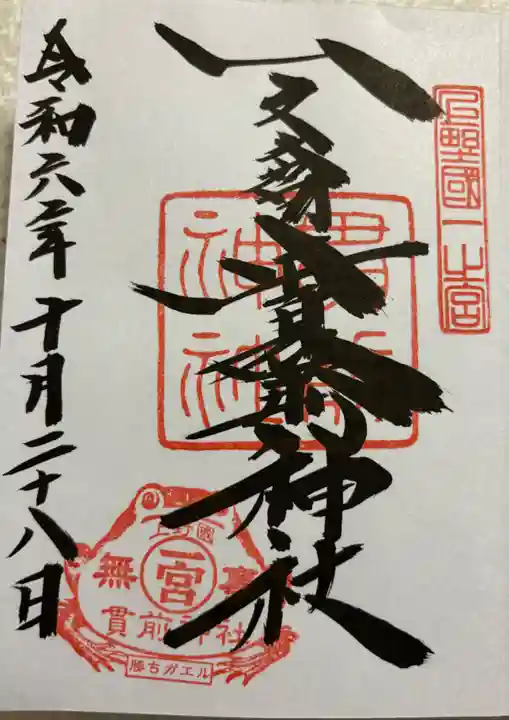 上野國一之宮
一之宮貫前神社
貫前神社
令和六年十月二十八日
上野國
一宮
無事
貫前神社
勝ちガエル